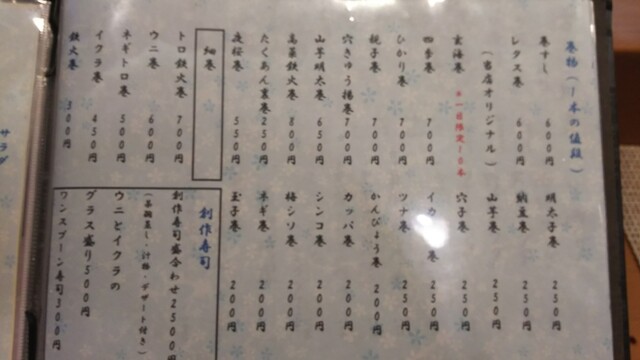 巻物(1本の値段)
巻すし 600円
レタス巻 600円
(当店オリジナル)
玄海巻 *一日限定10本
四季巻 700円
ひかり巻 700円
親子巻 700円
穴きゅう揚巻 700円
山芋明太巻 650円
高菜鉄火巻 800円
たくあん裏巻 250円
夜桜巻 550円
細巻
トロ鉄火巻 700円
ウニ巻 600円
ネギトロ巻 500円
イクラ巻 450円
鉄火巻 300円
明太子巻 250円
納豆巻 250円
山芋巻 250円
穴子巻 250円
巻 250円
ツナ巻 250円
かんぴょう巻 200円
カッパ巻 200円
シンコ巻 200円
梅シソ巻 200円
ネギ巻 200円
玉子巻 200円
創作寿司
創作寿司盛合わせ2500円
(茶碗蒸し・汁物・デザート付き)
ウニとイクラの
グラス盛り500円
ワンスプーン寿司300円
サラダ